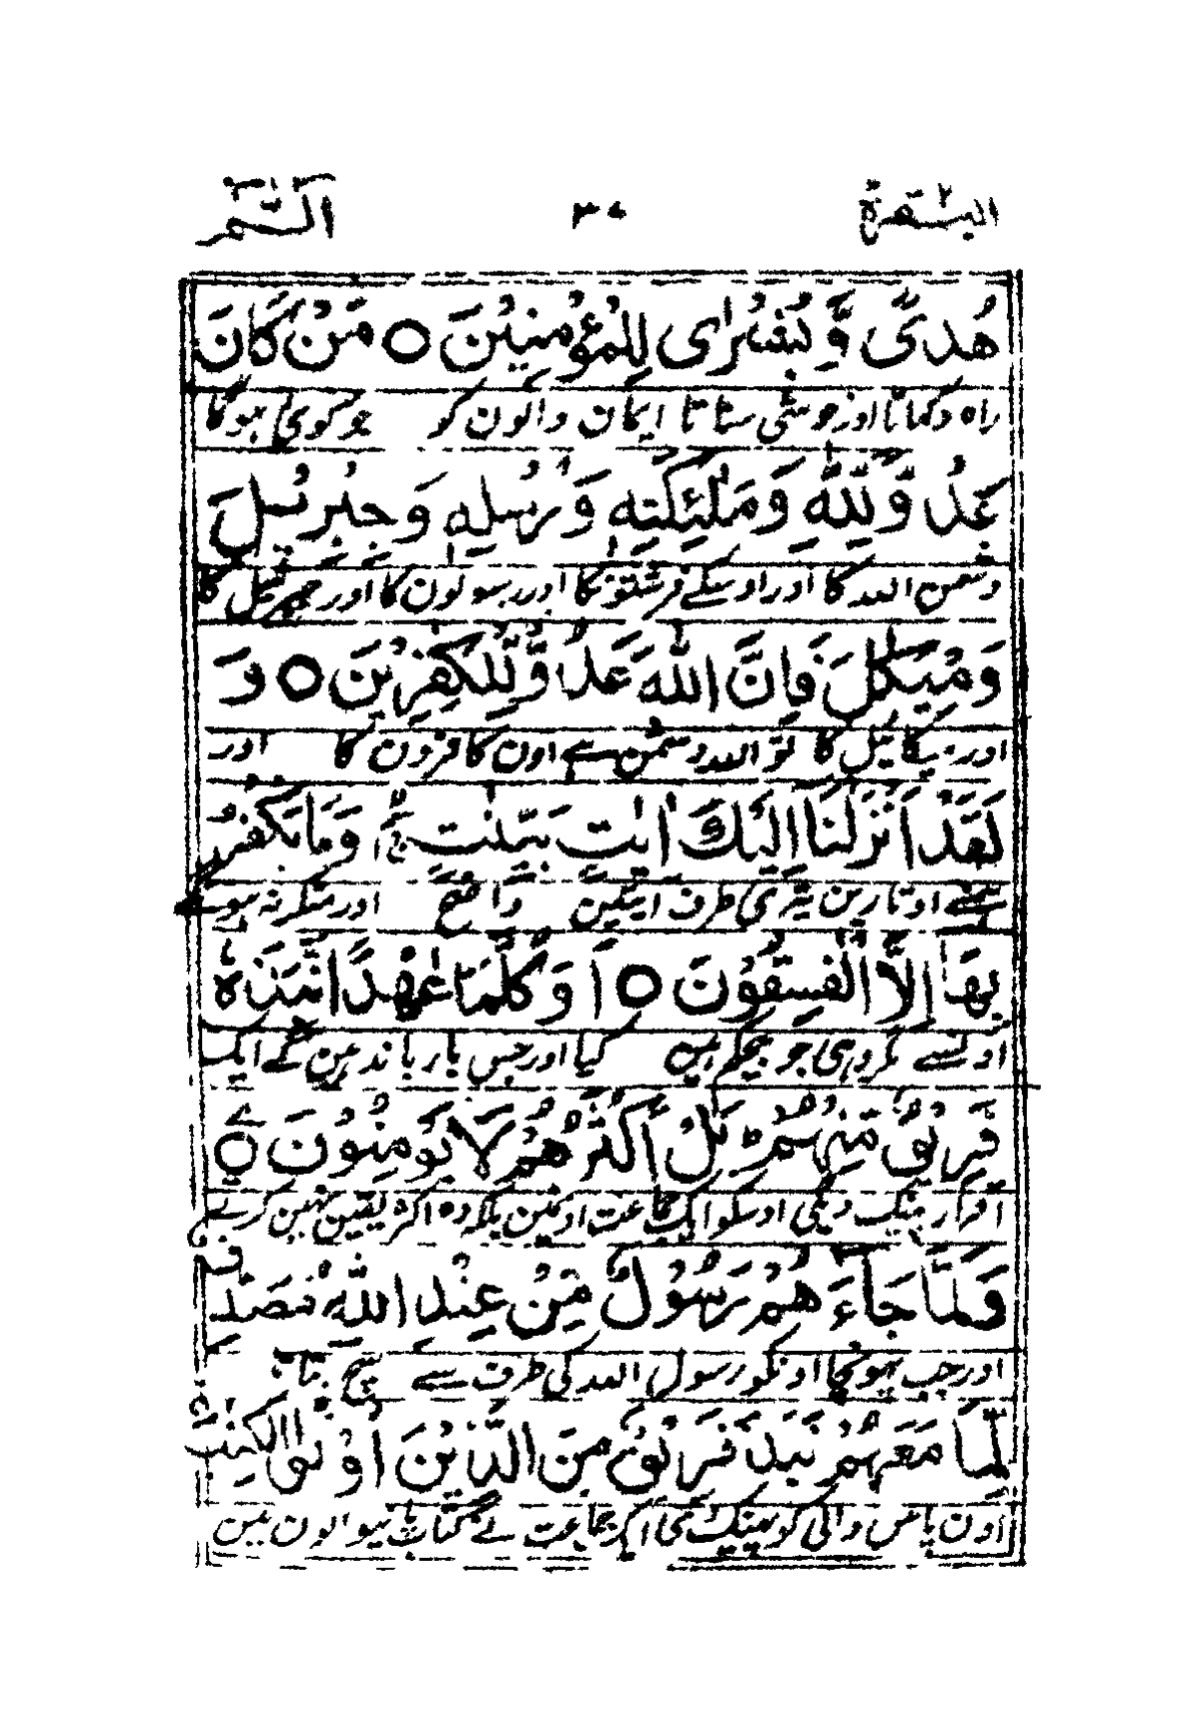 البقرة ٢ ٣٧ الٓمّٓ
هُدًى وَّ بُشْرٰى لِلْمُؤْمِنِيْنَ ○ مَنْ كَانَ
راہ دکھاتا اور خوشی سناتا ایمان والون کو جو کوئی ہوگا
عَدُوًّا لِّلّٰهِ وَمَلٰٓئِكَتِهٖ وَرُسُلِهٖ وَجِبْرِيْلَ
دشمن اللہ کا اور اوسکے فرشتونکا اور رسولون کا اور جبرئیل کا
وَمِيْكٰلَ فَاِنَّ اللّٰهَ عَدُوٌّ لِّلْكٰفِرِيْنَ ○ وَ
اور میکائیل کا تو اللہ دشمن ہے اون کافرون کا اور
لَقَدْ اَنْزَلْنَا اِلَيْكَ اٰيٰتٍ بَيِّنٰتٍ ج وَمَا يَكْفُرُ
ہمنے اوتارین تیری طرف آیتین واضح اور منکر نہ ہونگے
بِهَا اِلَّا الْفٰسِقُوْنَ ○ اَ وَكُلَّمَا عٰهَدُوْا عَهْدًا نَّبَذَهٗ
اونسے مگر وہی جو بیحکم ہیں کیا اور جس بار باندھین گے ایک
فَرِيْقٌ مِّنْهُمْ ط بَلْ اَكْثَرُهُمْ لَا يُؤْمِنُوْنَ ○
اقرار پھینک دیگی اوسکو ایک جماعت اونمین بلکہ وہ اکثر یقین نہین کرتے
وَلَمَّا جَآءَ هُمْ رَسُوْلٌ مِّنْ عِنْدِ اللّٰهِ مُصَدِّقٌ
اور جب پہونچا اونکو رسول اللہ کی طرف سے سچ بتاتا
لِّمَا مَعَهُمْ نَبَذَ فَرِيْقٌ مِّنَ الَّذِيْنَ اُوْتُوا الْكِتٰبَ
اون پاس والی کو پھینک دی ایک جماعت نے کتاب والون مین